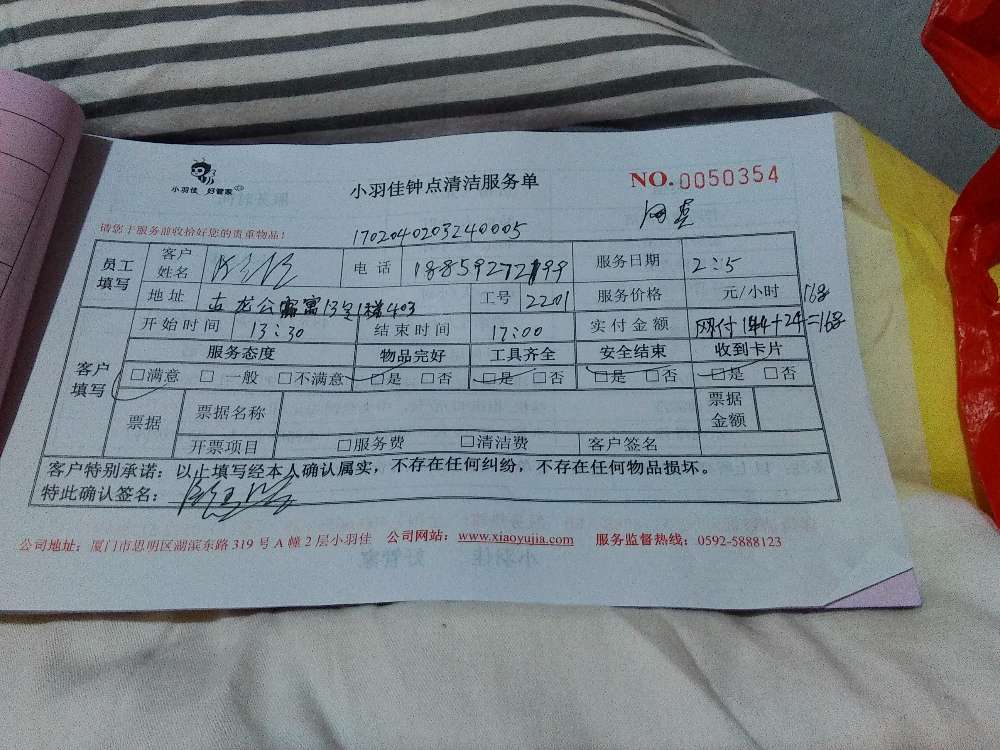 小羽佳 好管家
小羽佳钟点清洁服务单
NO.0050354
请您于服务前收拾好您的贵重物品!
1702040203240005
员工填写
客户姓名
电话 18859272199
服务日期 2:5
地址 古龙公寓13号1楼403
工号 2201
服务价格 元/小时 168
客户填写
开始时间 13:30
结束时间 17:00
实付金额 网付144+24=168
服务态度 物品完好 工具齐全 安全结束 收到卡片
□满意 □一般 □不满意 □是 □否 □是 □否 □是 □否 □是 □否
票据 票据名称 票据金额
开票项目 □服务费 □清洁费 客户签名
客户特别承诺:以止填写经本人确认属实,不存在任何纠纷,不存在任何物品损坏。
特此确认签名:
公司地址:厦门市思明区湖滨东路 319 号 A 幢 2 层小羽佳 公司网站:www.xiaoyujia.com 服务监督热线:0592-5888123